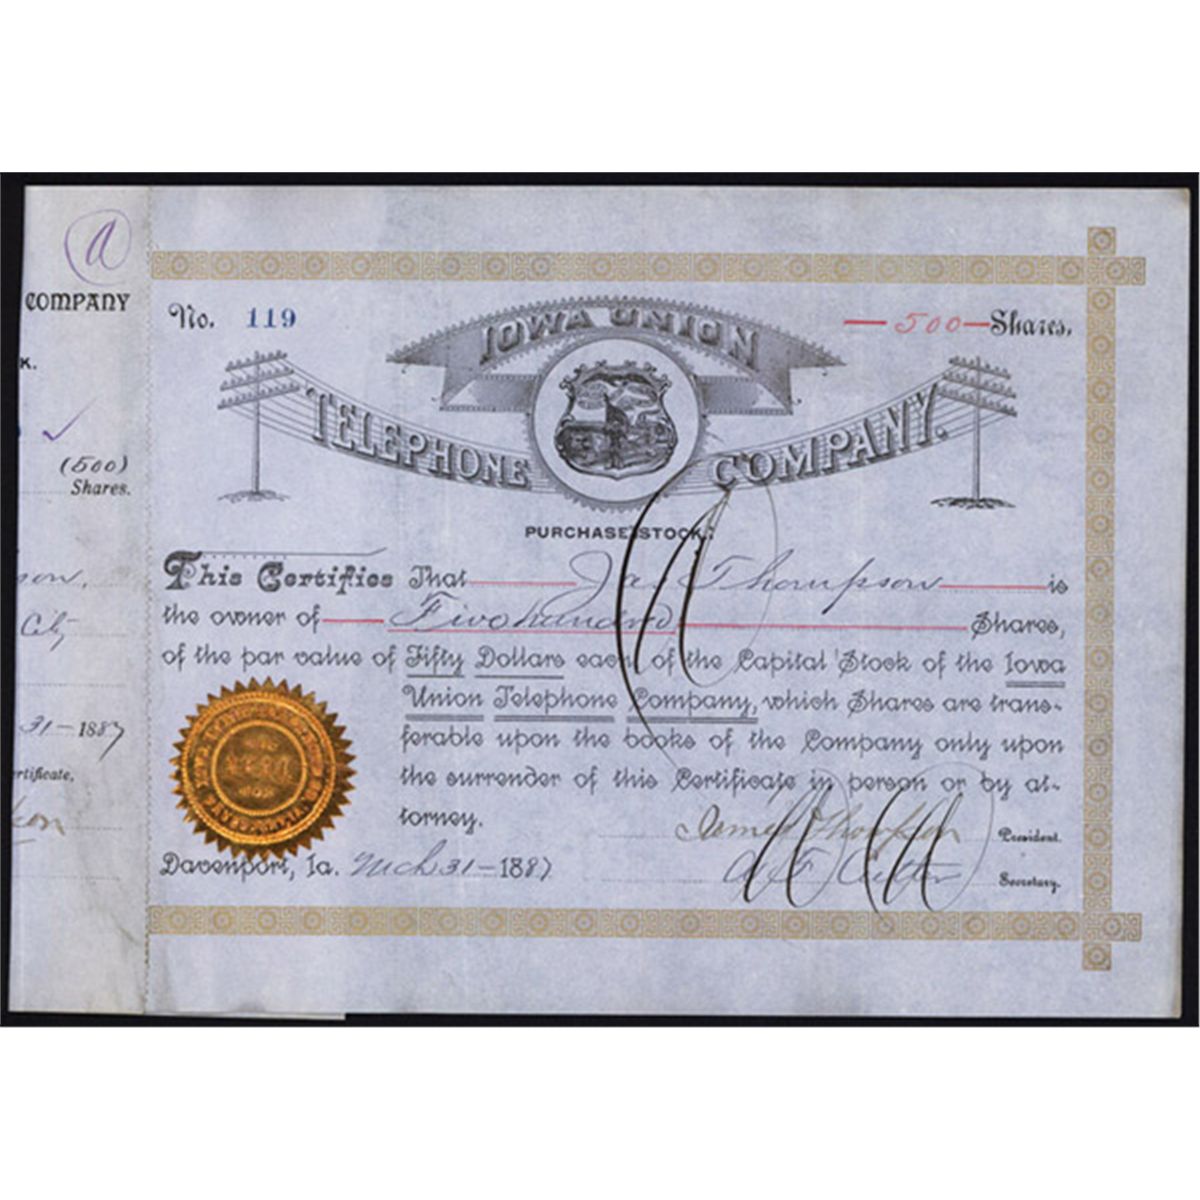 COMPANY
K.
(500)
Shares.
son.
City
31-1887
rtificate,
No. 119
500 Shares.
IOWA UNION
TELEPHONE COMPANY.
PURCHASE STOCK.
This Certifies That Jas Thompson is
the owner of Five hundred Shares,
of the par value of Fifty Dollars each of the Capital Stock of the Iowa
Union Telephone Company, which Shares are trans-
ferable upon the books of the Company only upon
the surrender of this Certificate in person or by at-
torney.
James Thompson President.
Secretary.
Davenport, Ia. Mch 31-1887